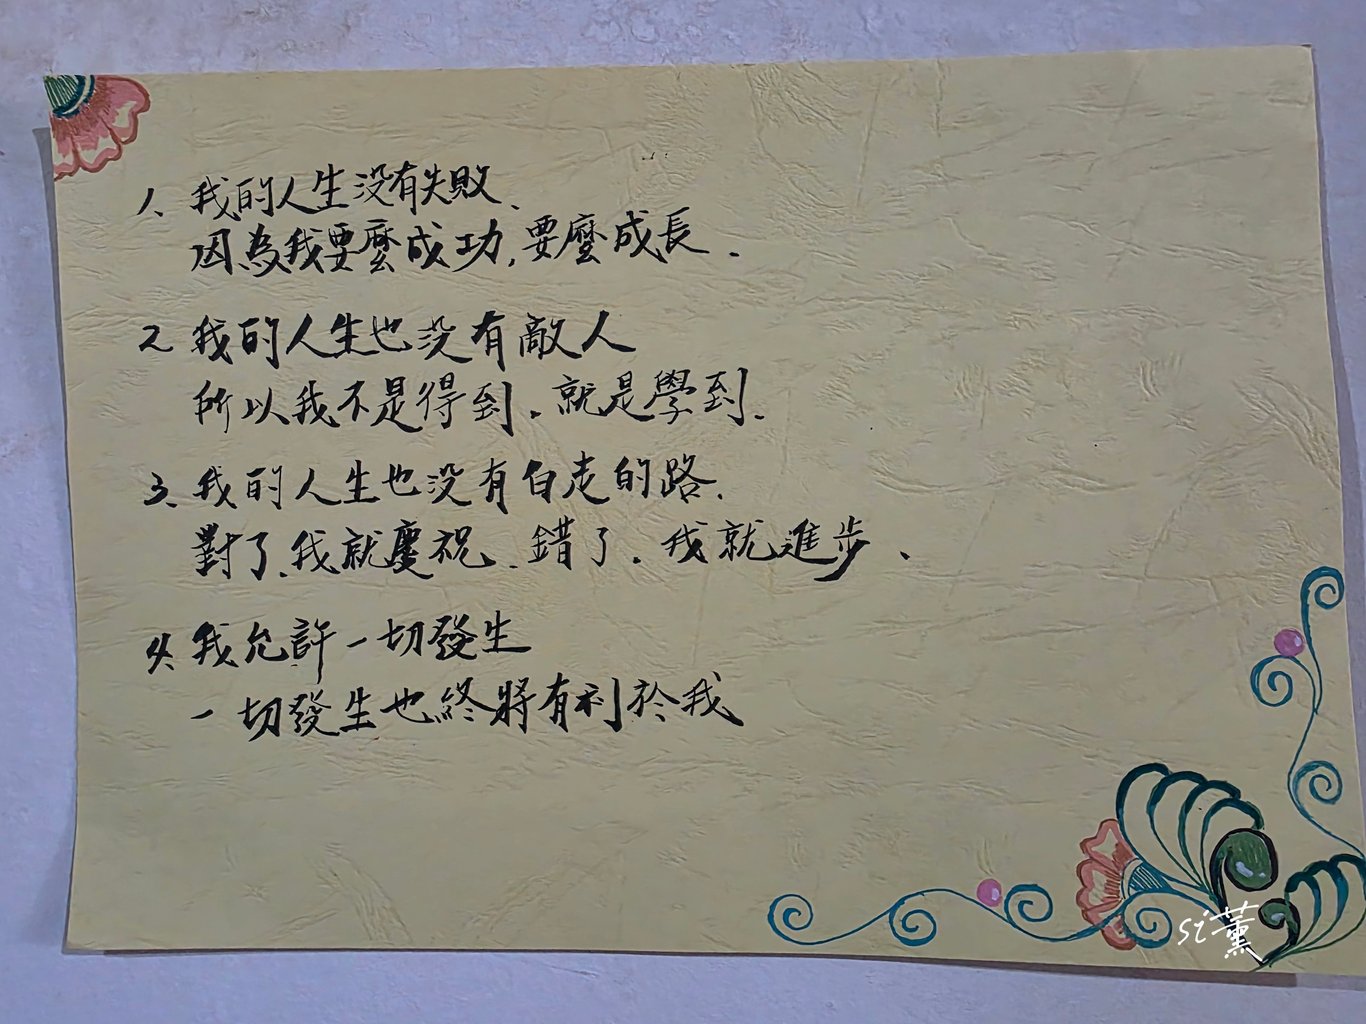 1、我的人生沒有失敗、
因為我要麼成功,要麼成長.
2 我的人生也沒有敵人
所以我不是得到.就是學到.
3、我的人生也沒有白走的路.
對了.我就慶祝.錯了.我就進步、
4、我允許一切發生
一切發生也終將有利於我
si薰